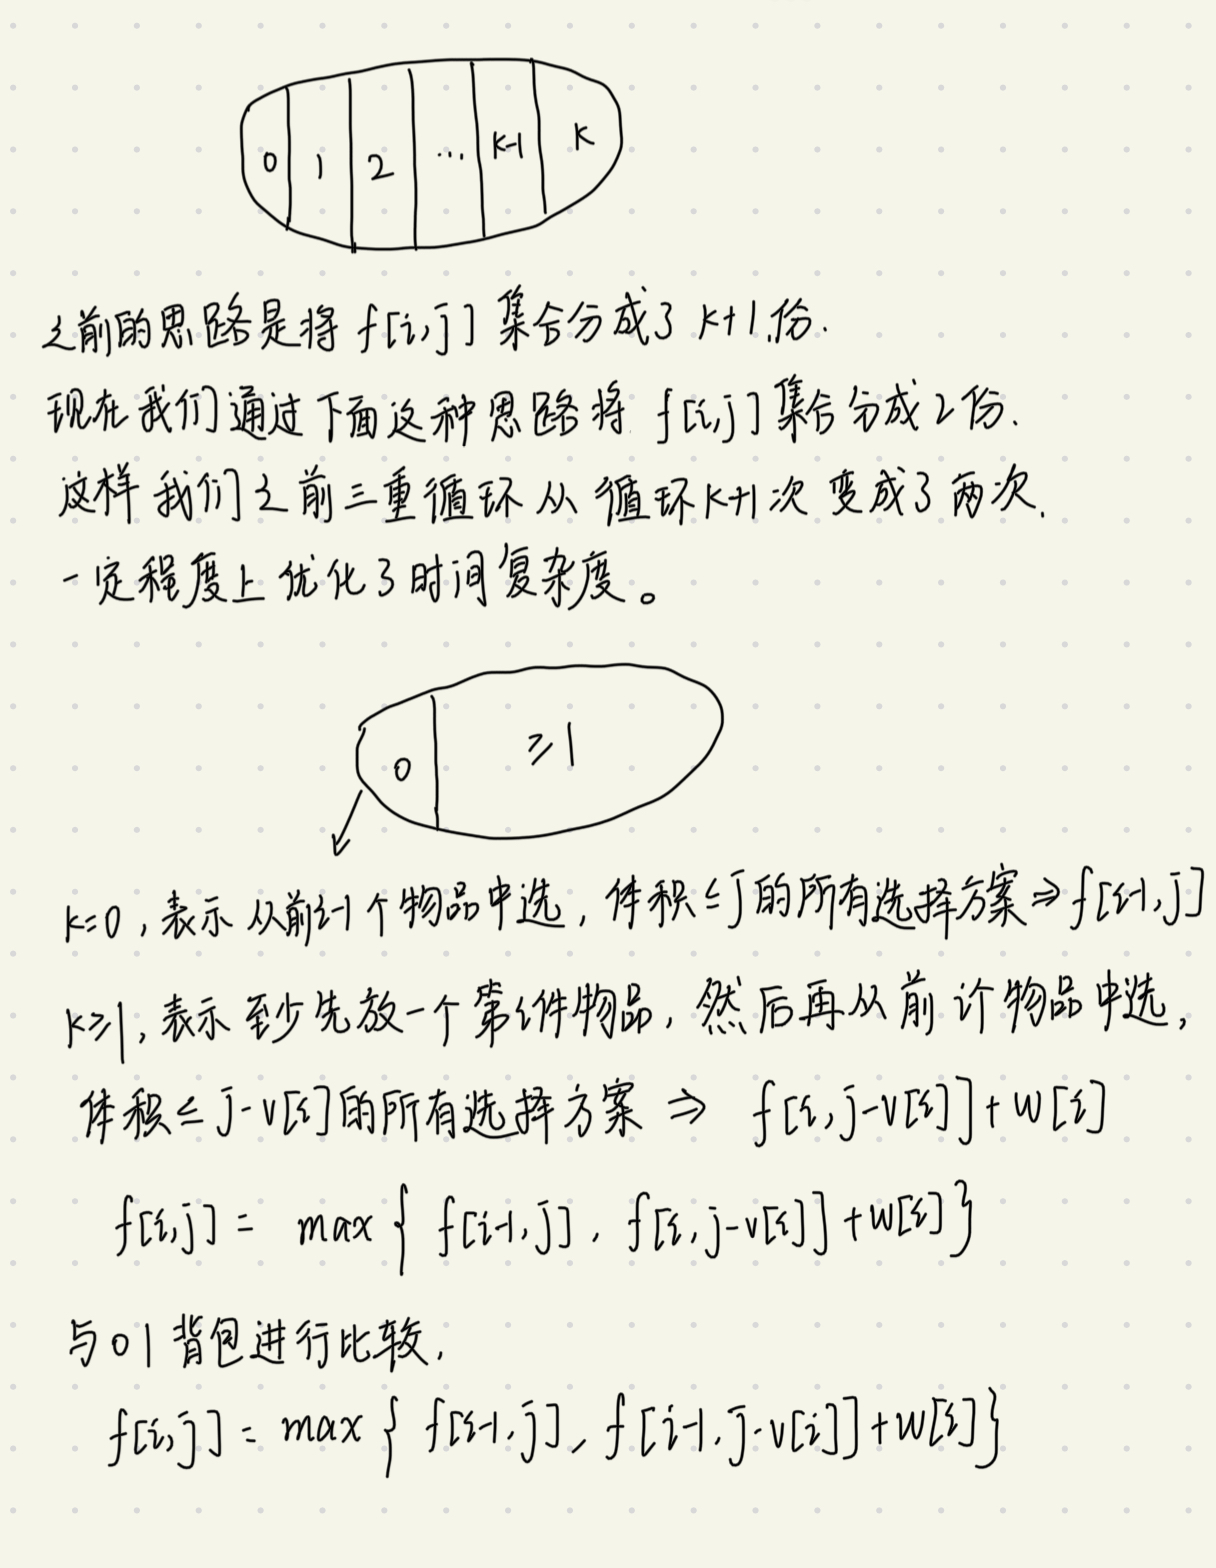 0 1 2 ... k-1 k
之前的思路是将 f[i,j] 集合分成了 k+1 份.
现在我们通过下面这种思路将 f[i,j] 集合分成2份.
这样我们之前三重循环从循环k+1次变成了两次.
一定程度上优化了时间复杂度。
0 ≥1
k=0,表示从前i-1个物品中选,体积≤j的所有选择方案⇒f[i-1,j]
k≥1,表示至少先放一个第i件物品,然后再从前i个物品中选,
体积≤j-v[i]的所有选择方案 ⇒ f[i,j-v[i]]+w[i]
f[i,j] = max{ f[i-1,j], f[i,j-v[i]]+w[i]}
与01背包进行比较,
f[i,j] = max{ f[i-1,j], f[i-1,j-v[i]]+w[i]}